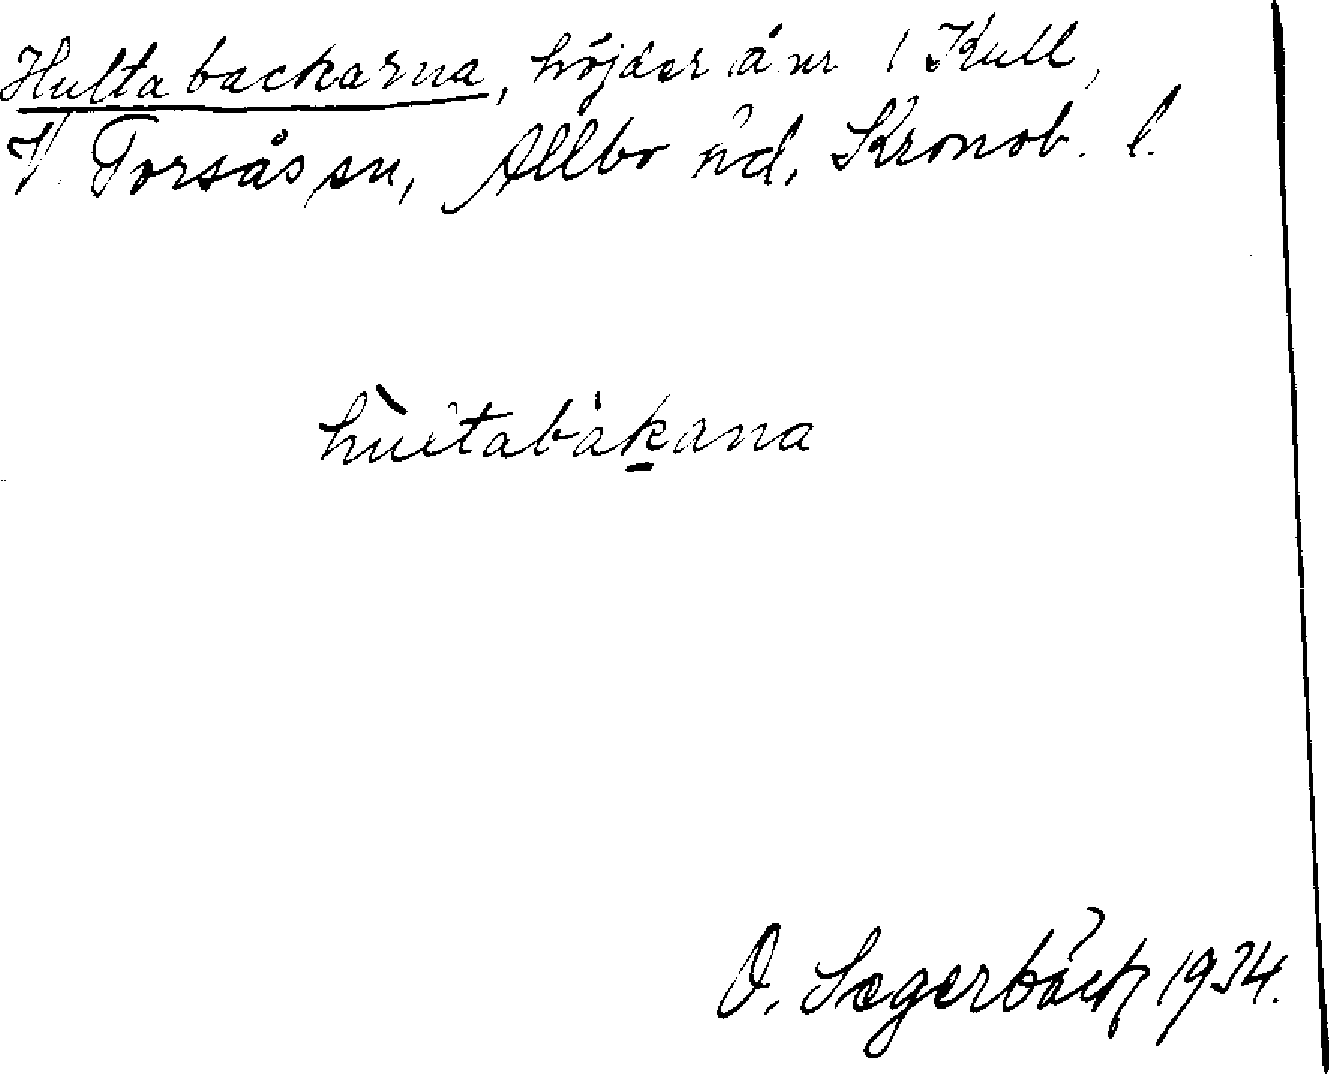 Hultabackarna, höjder å nr 1 Kull,
V. Torsås sn, Allbo hd, Kronob. l.
hùltabákana
O. Segerbäck 1934.